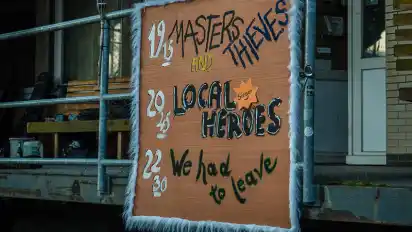 19 15 MASTERS
AND THIEVES
20 45 LOCAL
HEROES
22 30 We had
to leave